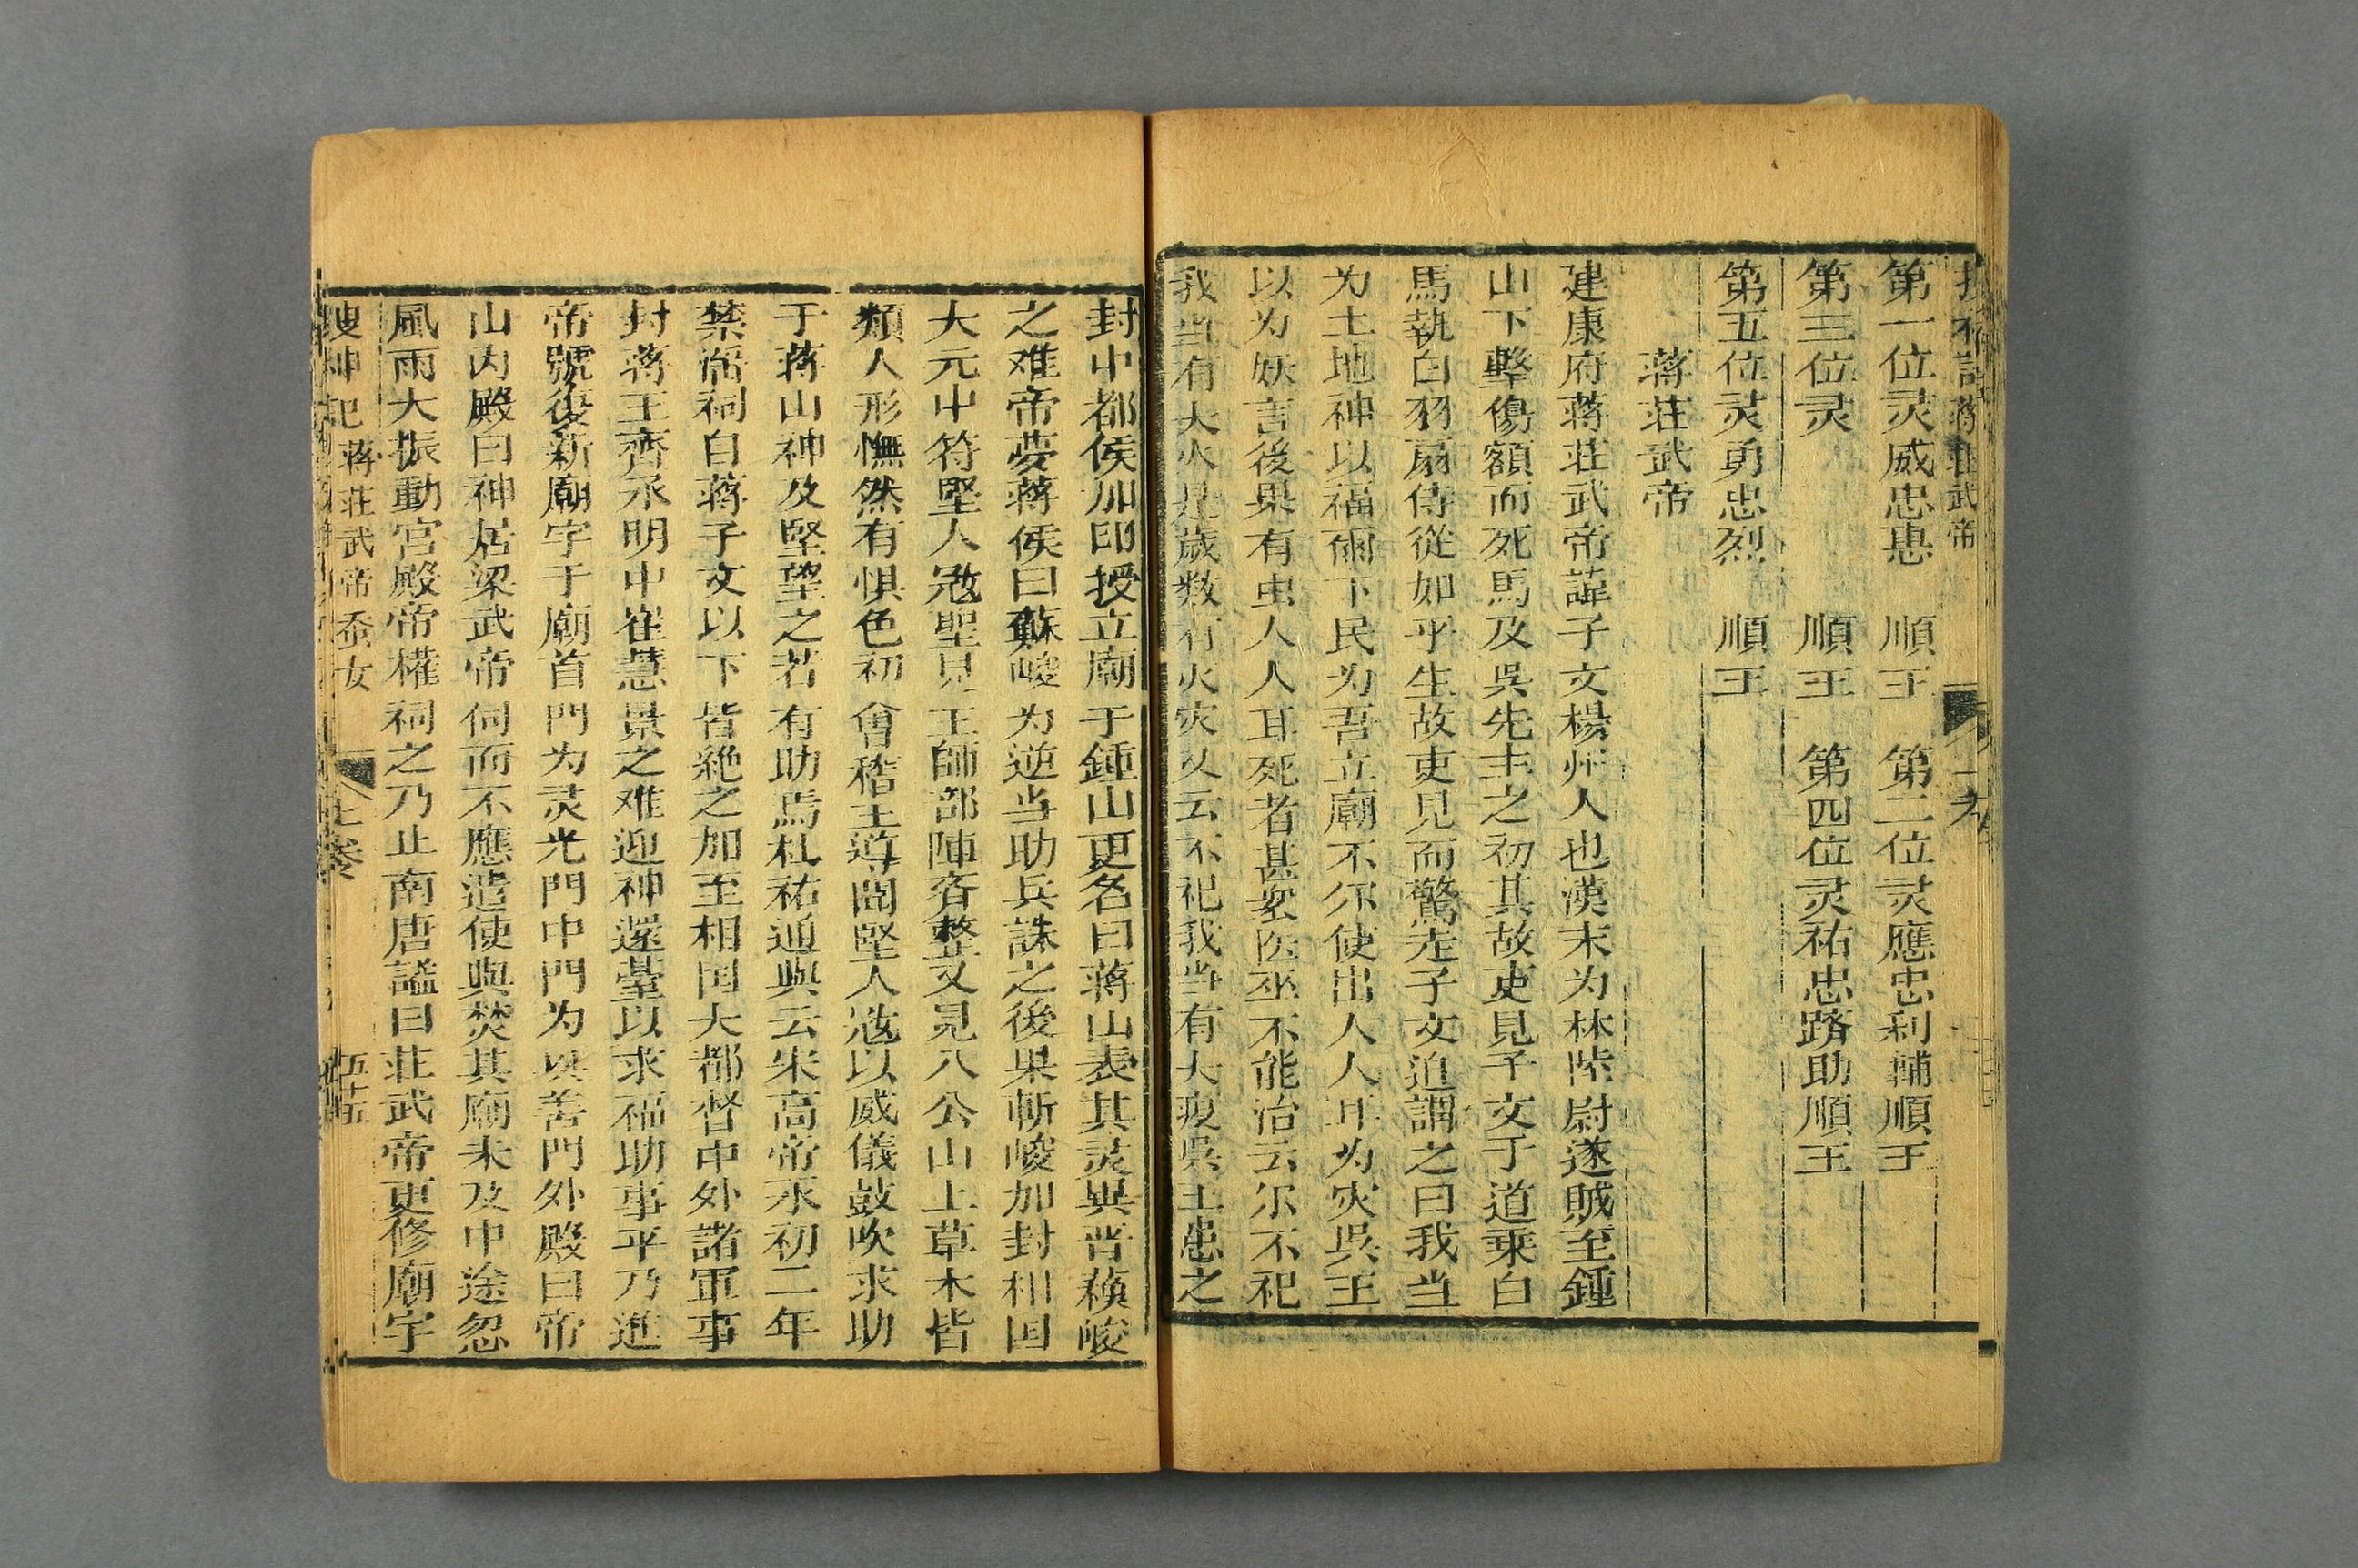 蔣莊武帝
第一位灵威忠惠 順王 第二位灵應忠利輔順王
第三位灵 順王 第四位灵祐忠躋助順王
第五位灵勇忠烈 順王
蔣莊武帝
建康府蔣莊武帝諱子文楊州人也漢末为林陵尉遂賊至鍾
山下擊傷額而死馬及吳先主之初其故吏見子文于道乘白
馬執白羽扇侍從如平生故吏見而驚走子文迫謂之曰我当
为土地神以福爾下民为吾立廟不尔使出人人耳为灾吳王
以为妖言後果有虫人人耳死者甚衆医巫不能治云尔不祀
我当有大火是歲数有火灾又云不祀我当有大疫吳王患之
封中都侯加印授立廟于鍾山更名曰蔣山表其灵異晋蘓峻
之难帝夢蔣侯曰蘇峻为逆当助兵誅之後果斬峻加封相囯
大元中符堅人寇聖見王師部陣齊整又見八公山上草木皆
類人形憮然有惧色初會稽王導聞堅人寇以威儀鼓吹求助
于蔣山神及堅望之若有助焉札祐通典云宋高帝永初二年
禁滛祠自蔣子文以下皆絶之加至相囯大都督中外諸軍事
封蔣王齊永明中崔慧景之难迎神還臺以求福助事平乃進
帝號復新廟宇于廟首門为灵光門中門为兴善門外殿曰帝
山内殿曰神居梁武帝伺而不應遣使與焚其廟未及中途忽
風雨大振動宮殿帝權祠之乃止南唐謚曰莊武帝更修廟宇
搜神記 蔣莊武帝 蚕女 七巻 五十五